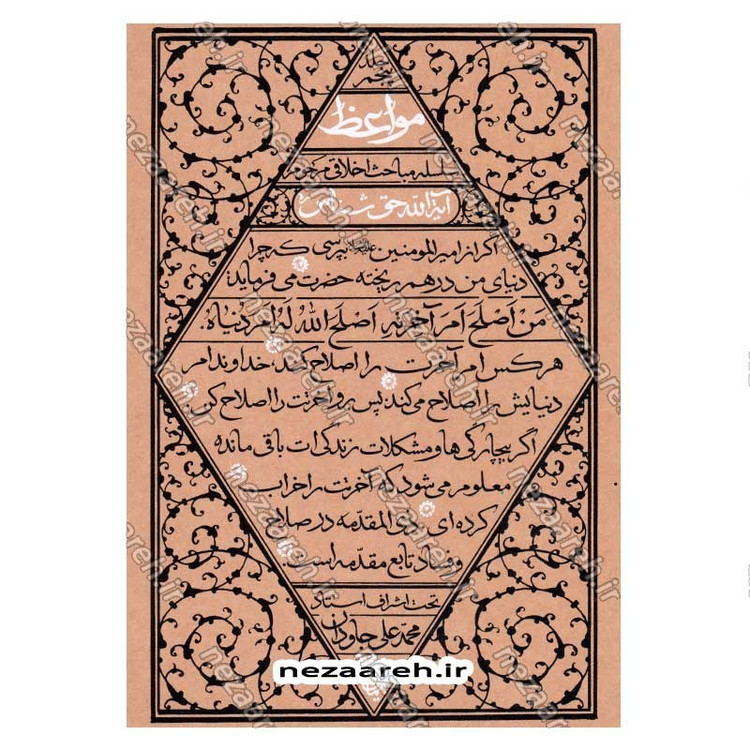 جلد پنجم
مواعظ
سلسله مباحث اخلاقی مرحوم
آیةالله حق شناس
اگر از امیرالمومنین علیه‌السلام بپرسی که چرا
دنیای من در هم ریخته حضرت می فرماید:
مَن اَصلَحَ اَمرَ آخرتِهِ اَصلَحَ اللهُ لَهُ اَمرَ دُنیاه.
هر کس امر آخرت را اصلاح کند، خداوند امر
دنیایش را اصلاح می کند؛ پس برو آخرتت را اصلاح کن.
اگر بیچارگی ها و مشکلات زندگی ات باقی مانده
معلوم می شود که آخرتت را خراب
کرده ای. ذی المقدمه در صلاح
و فساد تابع مقدّمه است.
تحت اشراف استاد
محمد علی جاودان
nezaareh.ir